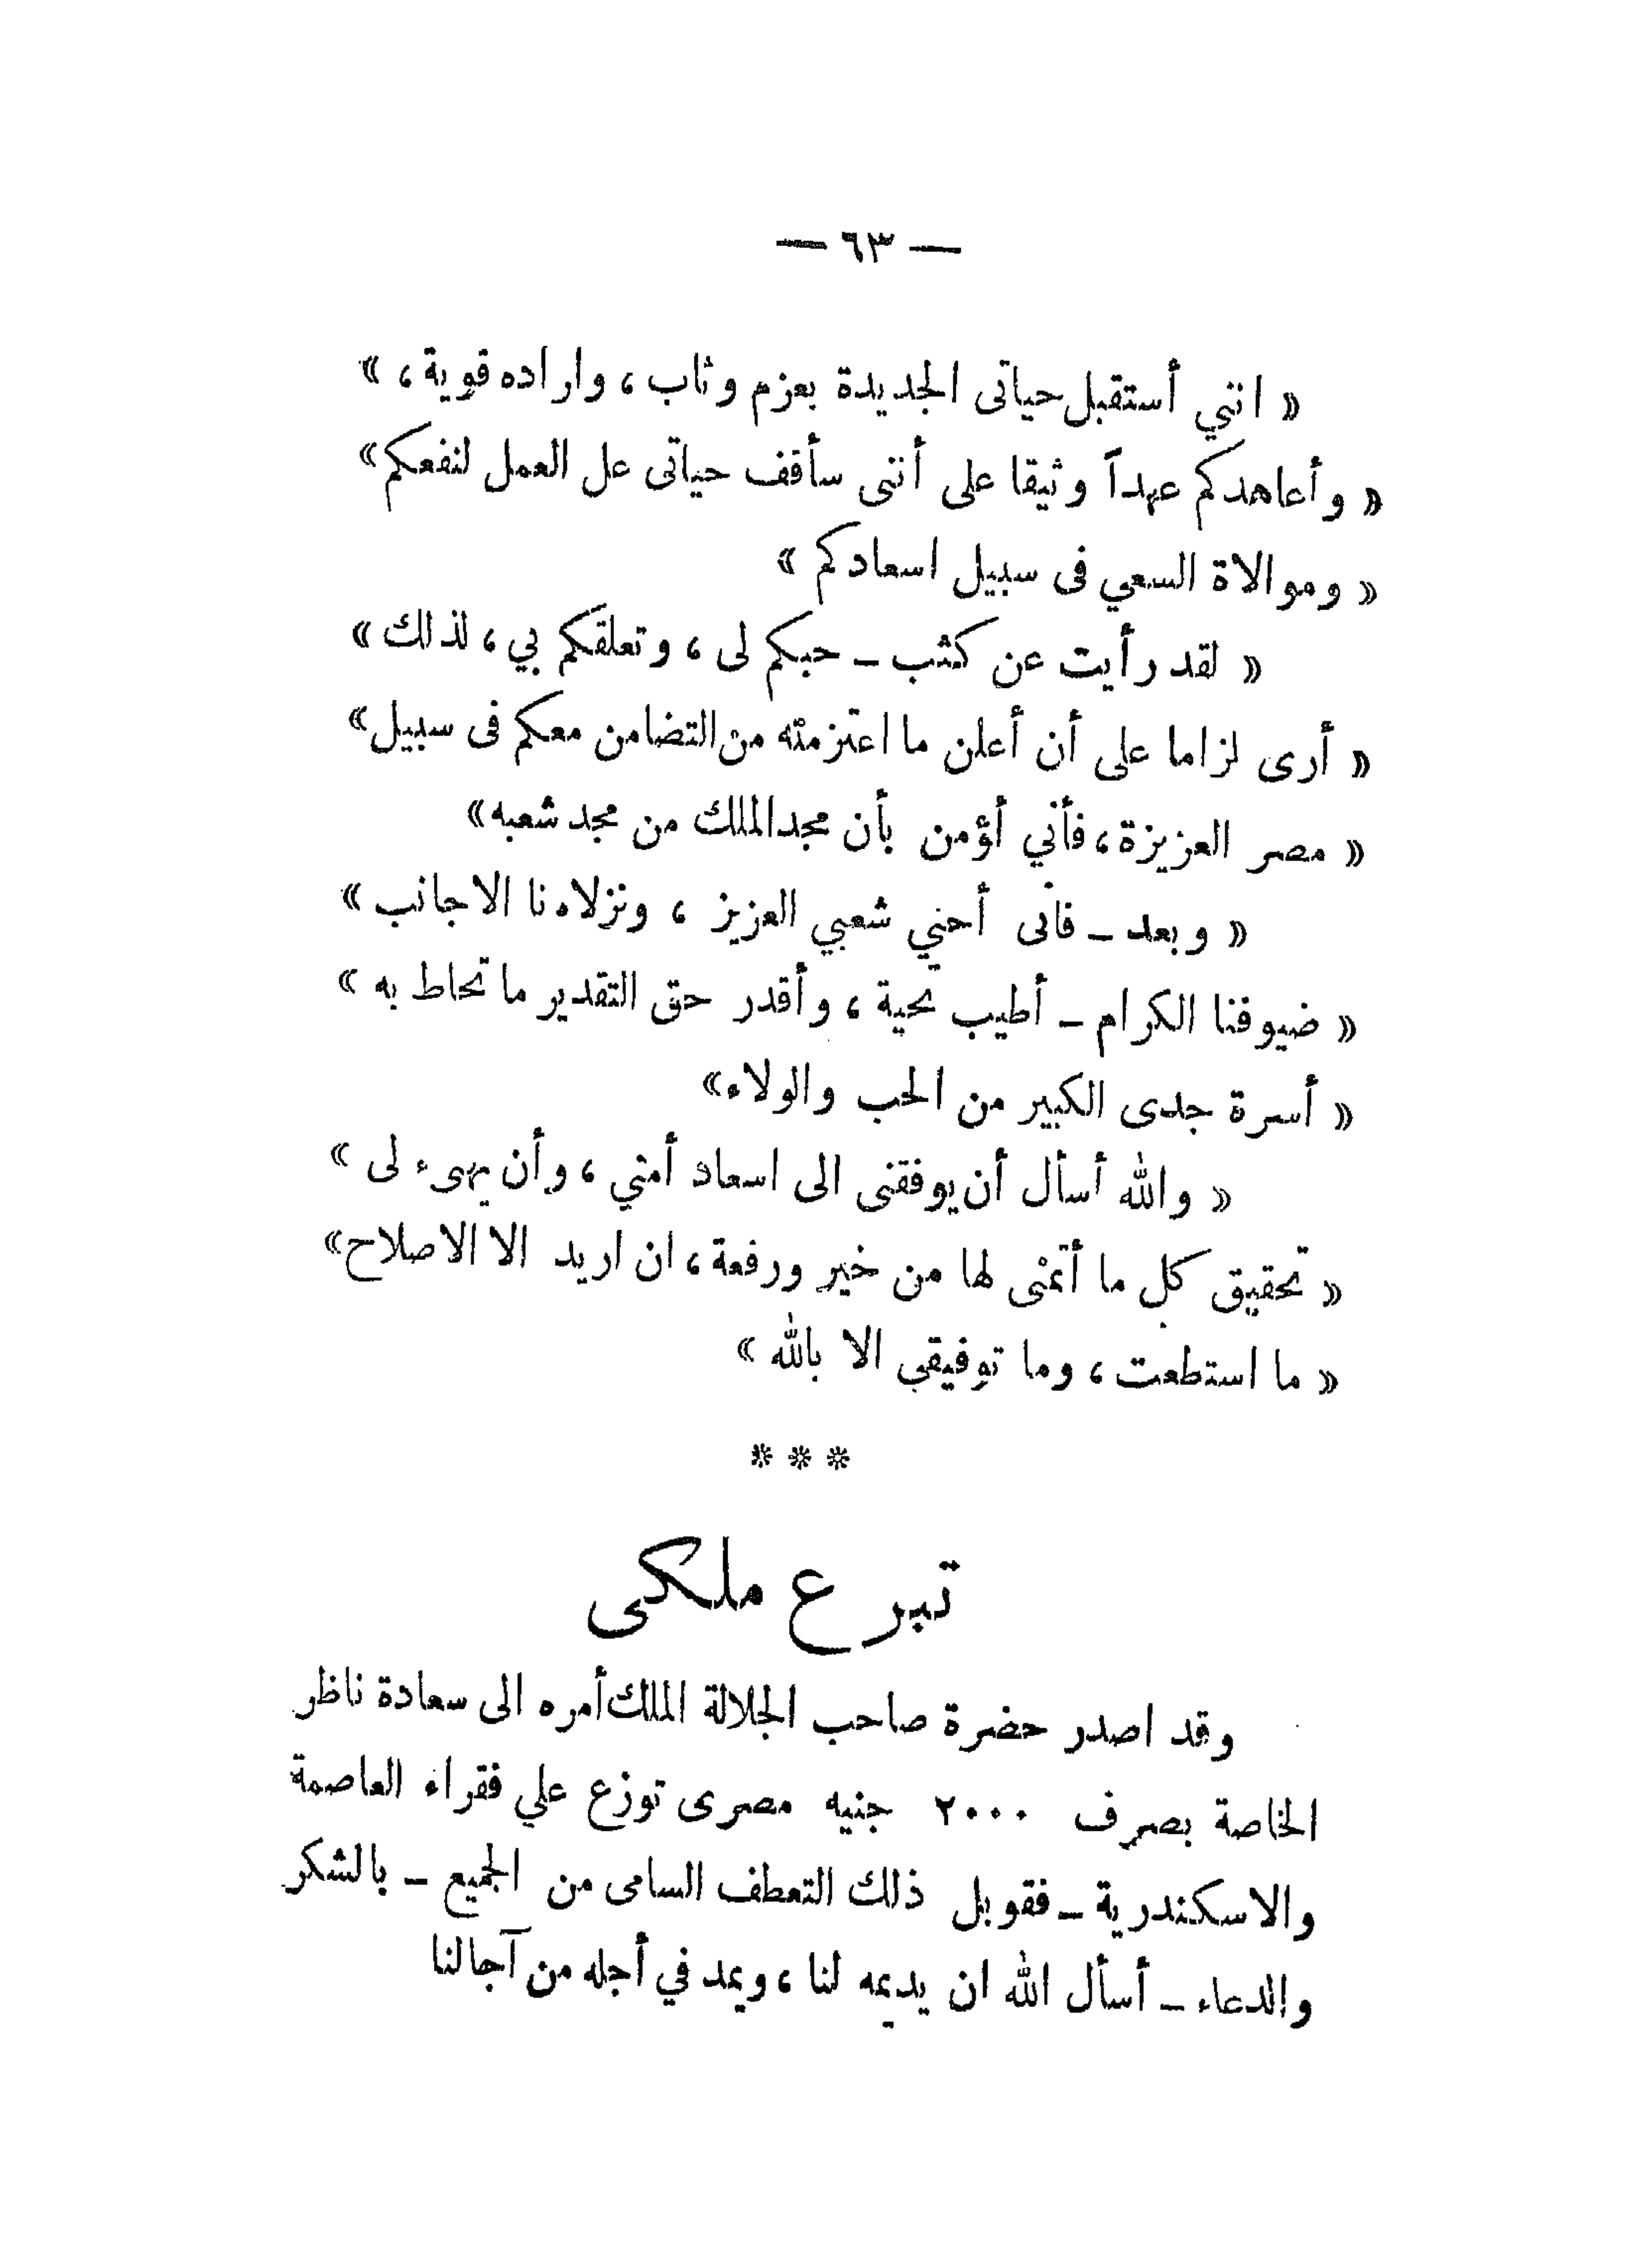 — ٦٣ —
« انني أستقبل حياتى الجديدة بعزم وثاب ، واراده قوية ، »
« وأعاهدكم عهداً وثيقا على أننى سأقف حياتى عل العمل لنفعكم »
« وموالاة السعي فى سبيل اسعادكم »
« لقد رأيت عن كثب – حبكم لى ، وتعلقكم بي ، لذلك »
« أرى لزاما على أن أعلن ما اعتزمته من التضامن معكم فى سبيل »
« مصر العزيزة ، فأني أؤمن بأن مجد الملك من مجد شعبه »
« وبعد – فانى أحيي شعبي العزيز ، ونزلاءنا الاجانب »
« ضيوفنا الكرام – أطيب تحية ، وأقدر حق التقدير ما تحاط به »
« أسرة جدى الكبير من الحب والولاء »
« والله أسأل أن يوفقنى الى اسعاد أمتي ، وأن يهىء لى »
« تحقيق كل ما أتمنى لها من خير ورفعة ، ان اريد الا الاصلاح »
« ما استطعت ، وما توفيقي الا بالله »
* * *
تبرع ملكى
وقد اصدر حضرة صاحب الجلالة الملك أمره الى سعادة ناظر
الخاصة بصرف ٢٠٠٠ جنيه مصرى توزع علي فقراء العاصمة
والاسكندرية – فقوبل ذلك التعطف السامى من الجميع – بالشكر
والدعاء – أسأل الله ان يديمه لنا ، ويمد في أجله من آجالنا